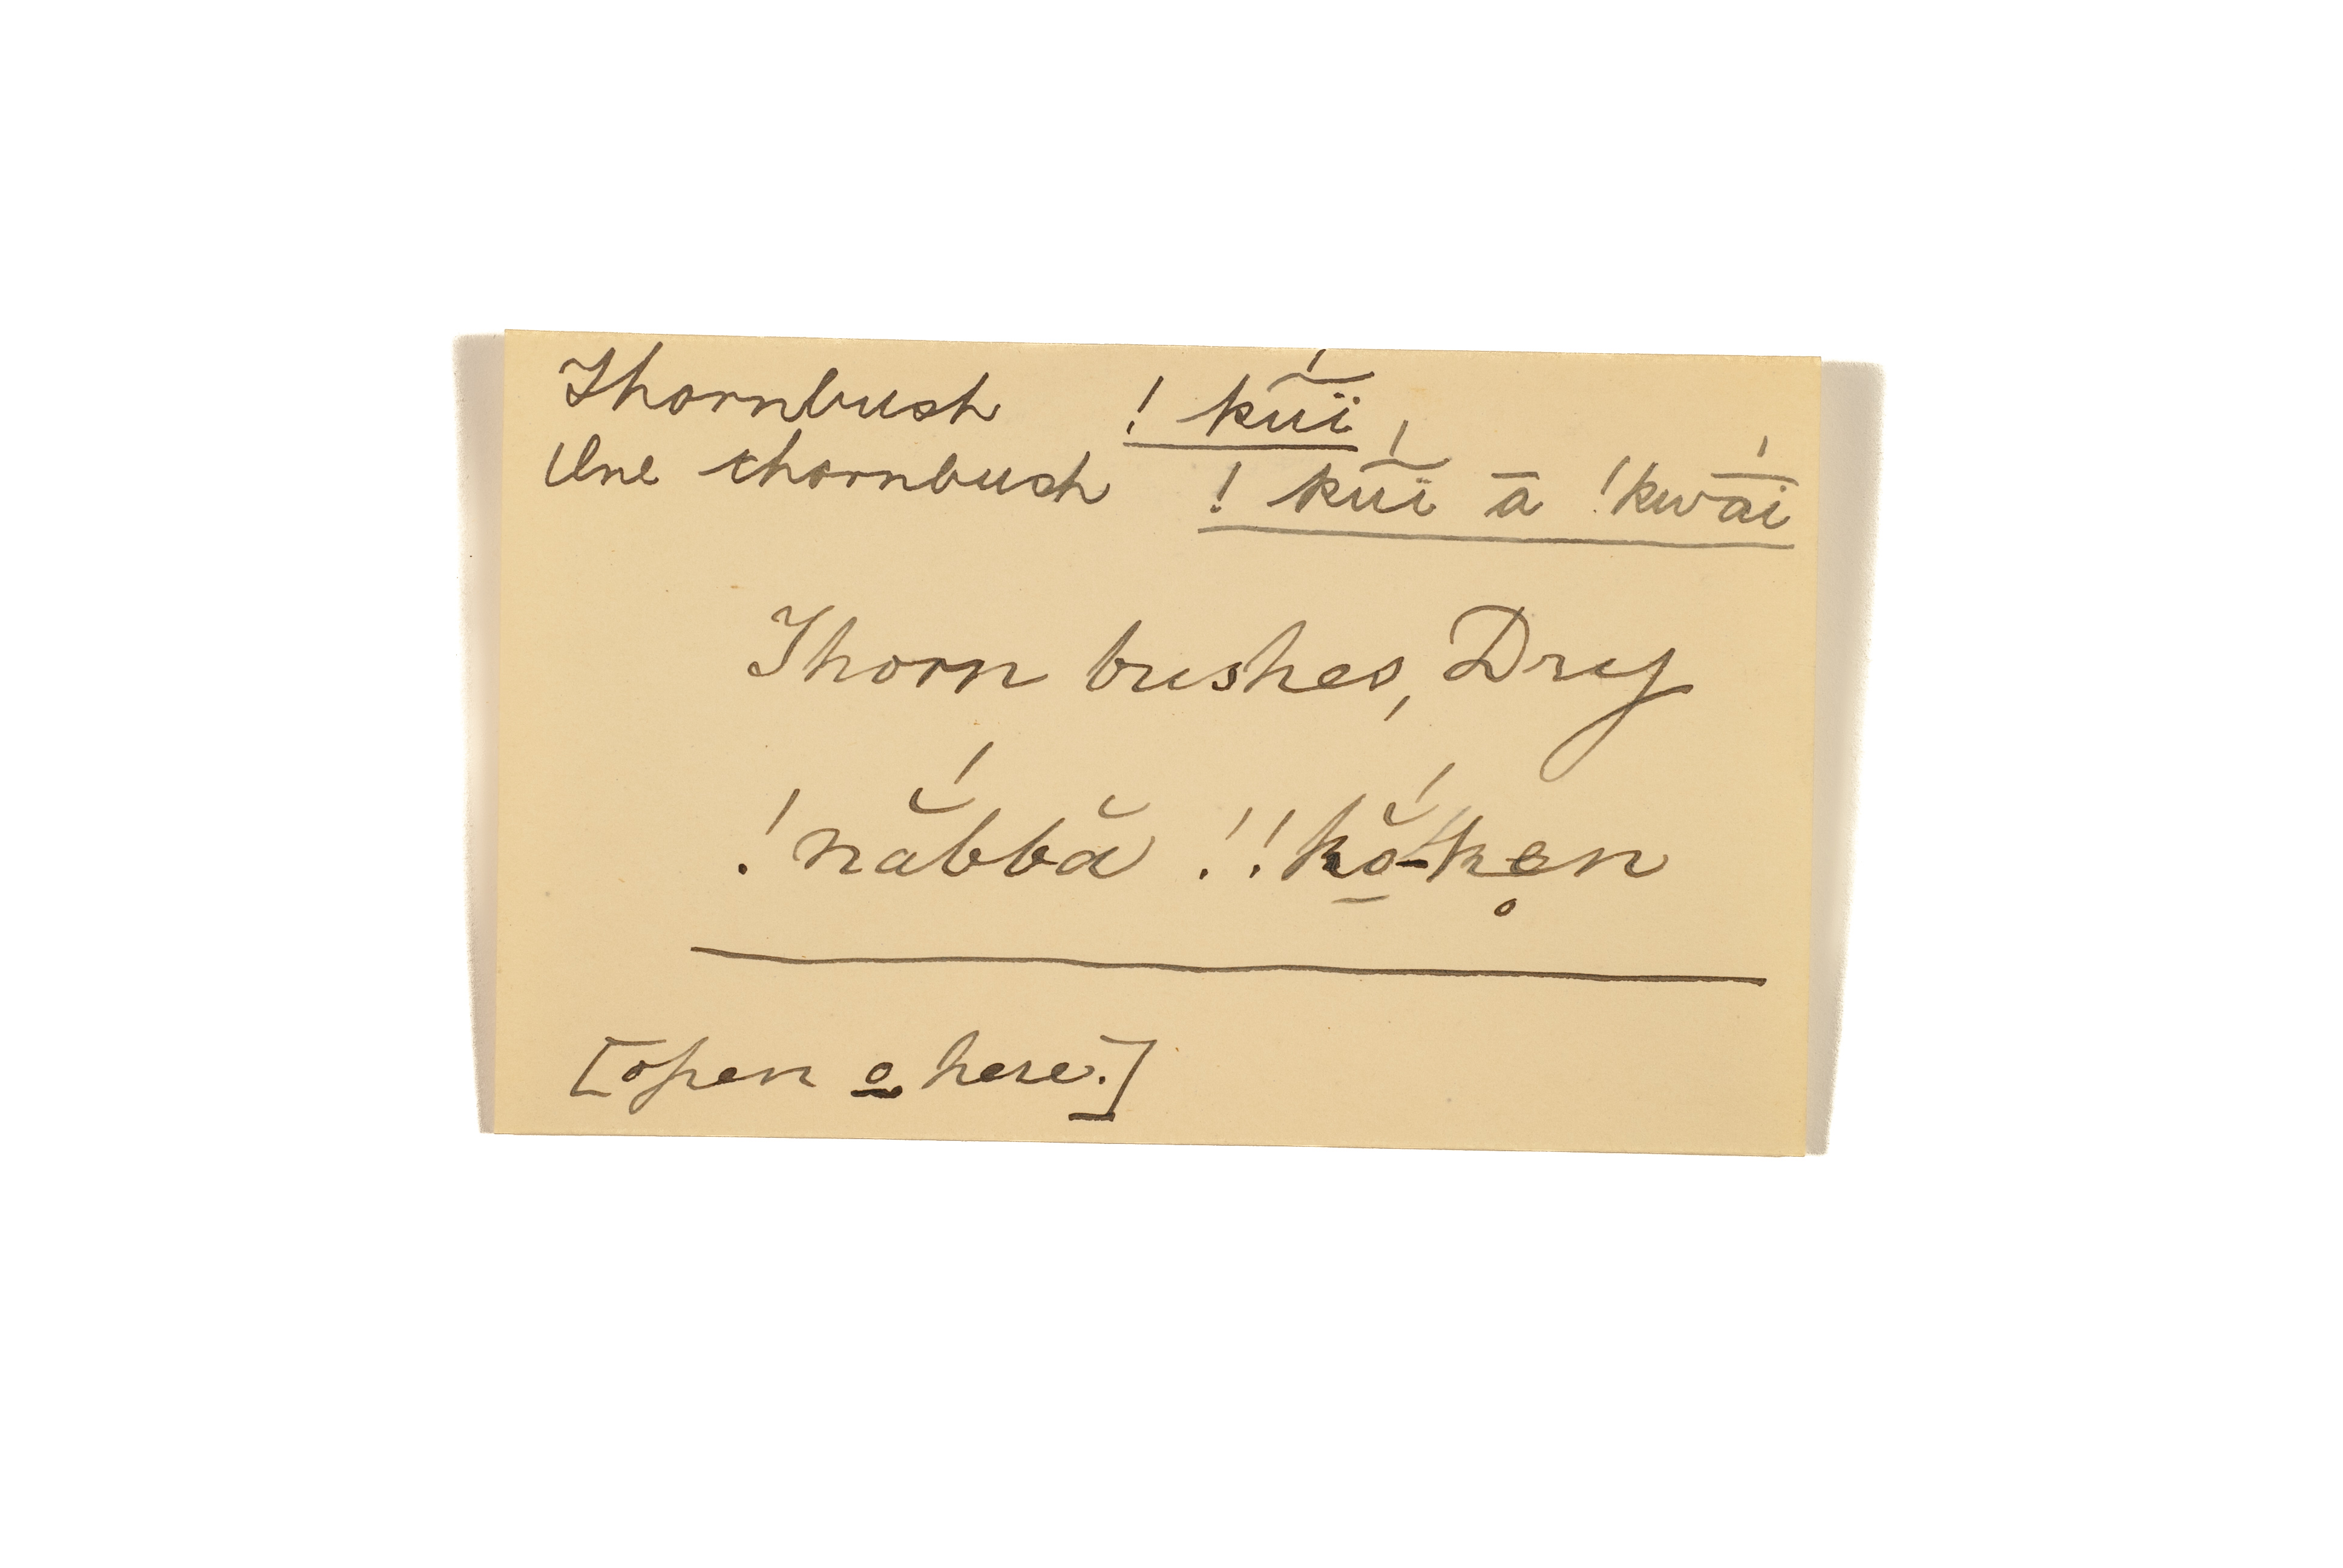 Thornbush ! kúï
One thornbush ! kúï ā !kwā́i
Thorn bushes, Dry
!nắbbă !!kŏ̱́-ke̥n
[open o̱ here.]